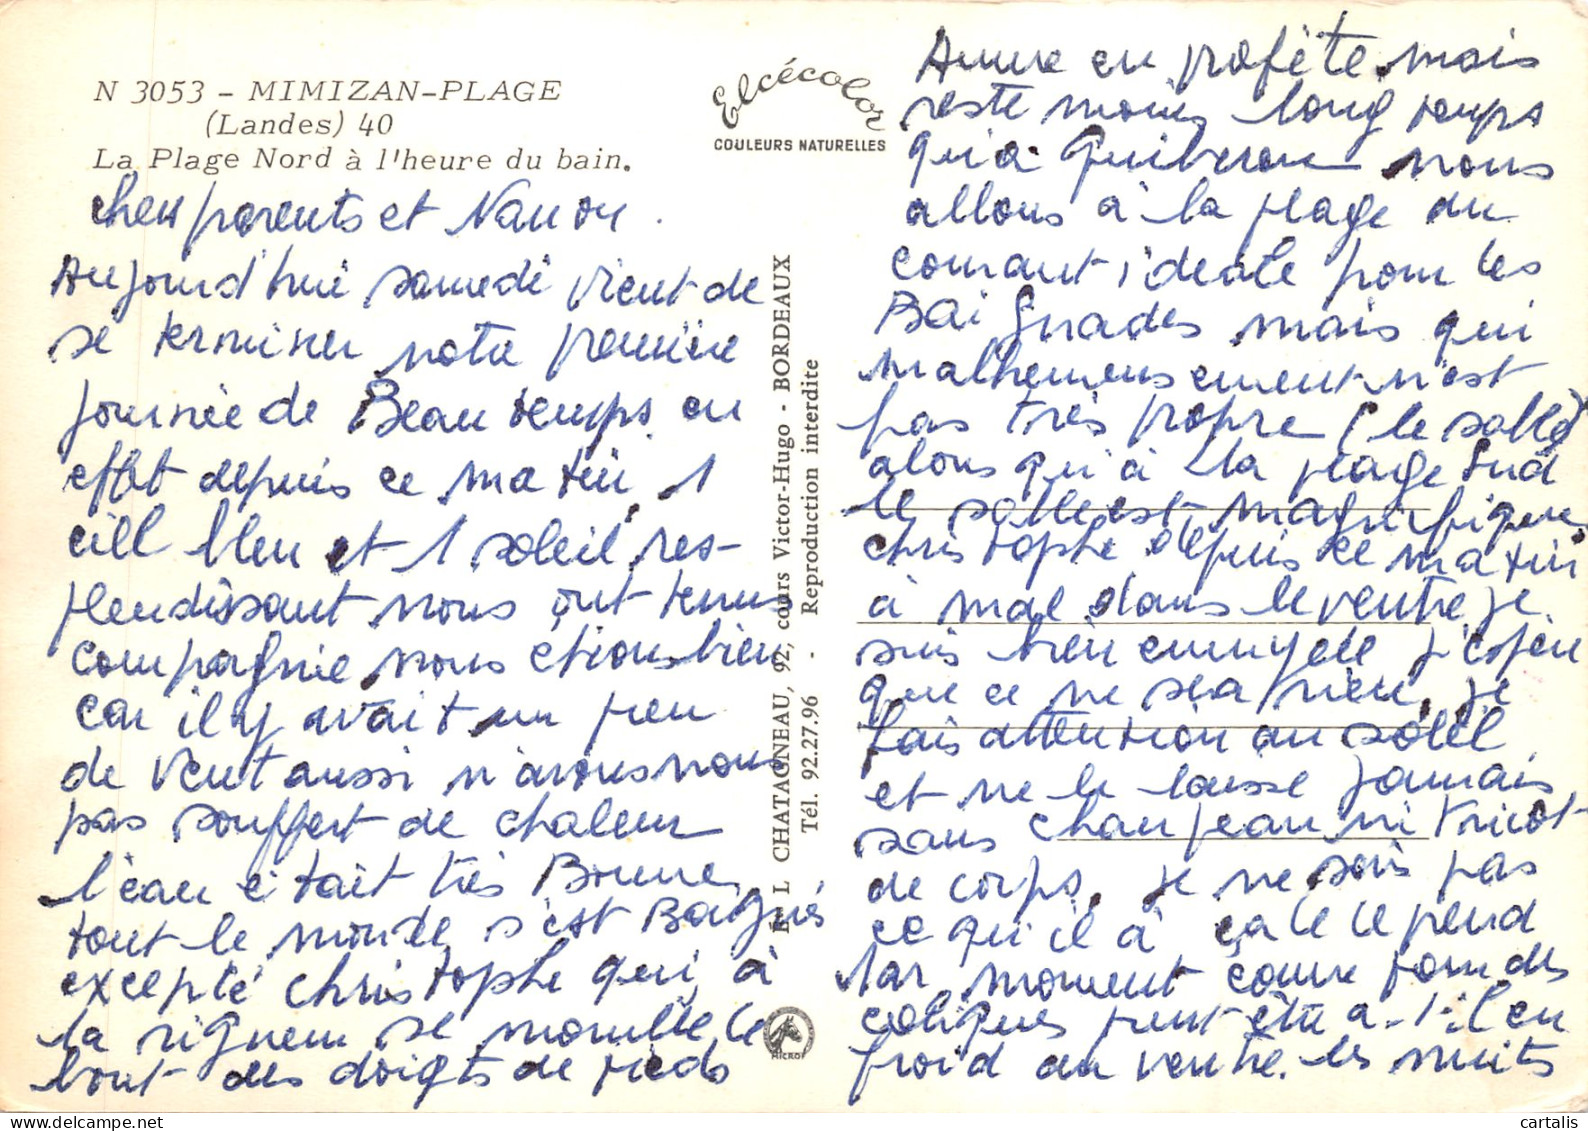 N 3053 - MIMIZAN-PLAGE
(Landes) 40
La Plage Nord à l'heure du bain.
Elcécolor
COULEURS NATURELLES
chers parents et Nanou.
Aujourd'hui samedi vient de
se terminer notre première
journée de Beau temps en
effet depuis ce matin 1
ciel bleu et 1 soleil res-
plendissant nous ont tenus
compagnie nous étions bien
car il y avait un peu
de vent aussi n'avons nous
pas souffert de chaleur
l'eau était très Bonne,
tout le monde s'est Baignés
excepté christophe qui à
la rigueur se mouille le
bout des doigts de pieds
EL L CHATAGNEAU, 92, cours Victor-Hugo - BORDEAUX
Tél. 92.27.96 - Reproduction interdite
MICRO
en profite mais
reste moins long temps
qu'à Quiberon nous
allons à la plage du
courant idéale pour les
Baignades mais qui
malheureusement n'est
pas très propre (le sable)
alors qu'à la plage Sud
le sable est magnifique,
christophe depuis ce matin
à mal dans le ventre je
suis bien ennuyée j'espère
que ce ne sea rien, je
fais attention au soleil
et ne le laisse jamais
sans chapeau ni tricot
de corps, je ne sais pas
ce qu'il à ça le le prend
par moment comme pour des
coliques peut être a-t-il eu
froid au ventre. les nuits